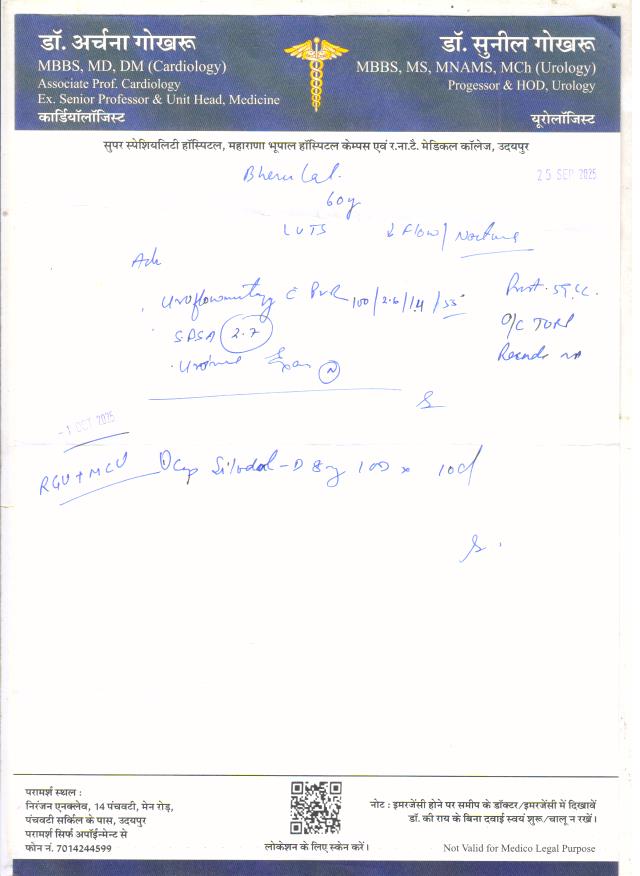 डॉ. अर्चना गोखरू
MBBS, MD, DM (Cardiology)
Associate Prof. Cardiology
Ex. Senior Professor & Unit Head, Medicine
कार्डियॉलॉजिस्ट
डॉ. सुनील गोखरू
MBBS, MS, MNAMS, MCh (Urology)
Progessor & HOD, Urology
यूरोलॉजिस्ट
सुपर स्पेशियलिटी हॉस्पिटल, महाराणा भूपाल हॉस्पिटल केम्पस एवं र.ना.टै. मेडिकल कॉलेज, उदयपुर
25 SEP 2025
Bheru Lal.
60y
LUTS ↓ Flow/
Adv
Uroflowmetry c PVR 100/2.6/1.4/55
Prost. 59cc.
SPSA 2.7
O/C TURP
Urine Exam N
Records
-1 OCT 2025
RGU + MCU
Cap Silodal-D 8mg 1OD x 10d
परामर्श स्थल :
निरंजन एनक्लेव, 14 पंचवटी, मेन रोड़,
पंचवटी सर्किल के पास, उदयपुर
परामर्श सिर्फ अपॉईन्मेन्ट से
फोन नं. 7014244599
लोकेशन के लिए स्केन करें।
नोट : इमरजेंसी होने पर समीप के डॉक्टर/इमरजेंसी में दिखावें
डॉ. की राय के बिना दवाई स्वयं शुरू/चालू न रखें।
Not Valid for Medico Legal Purpose